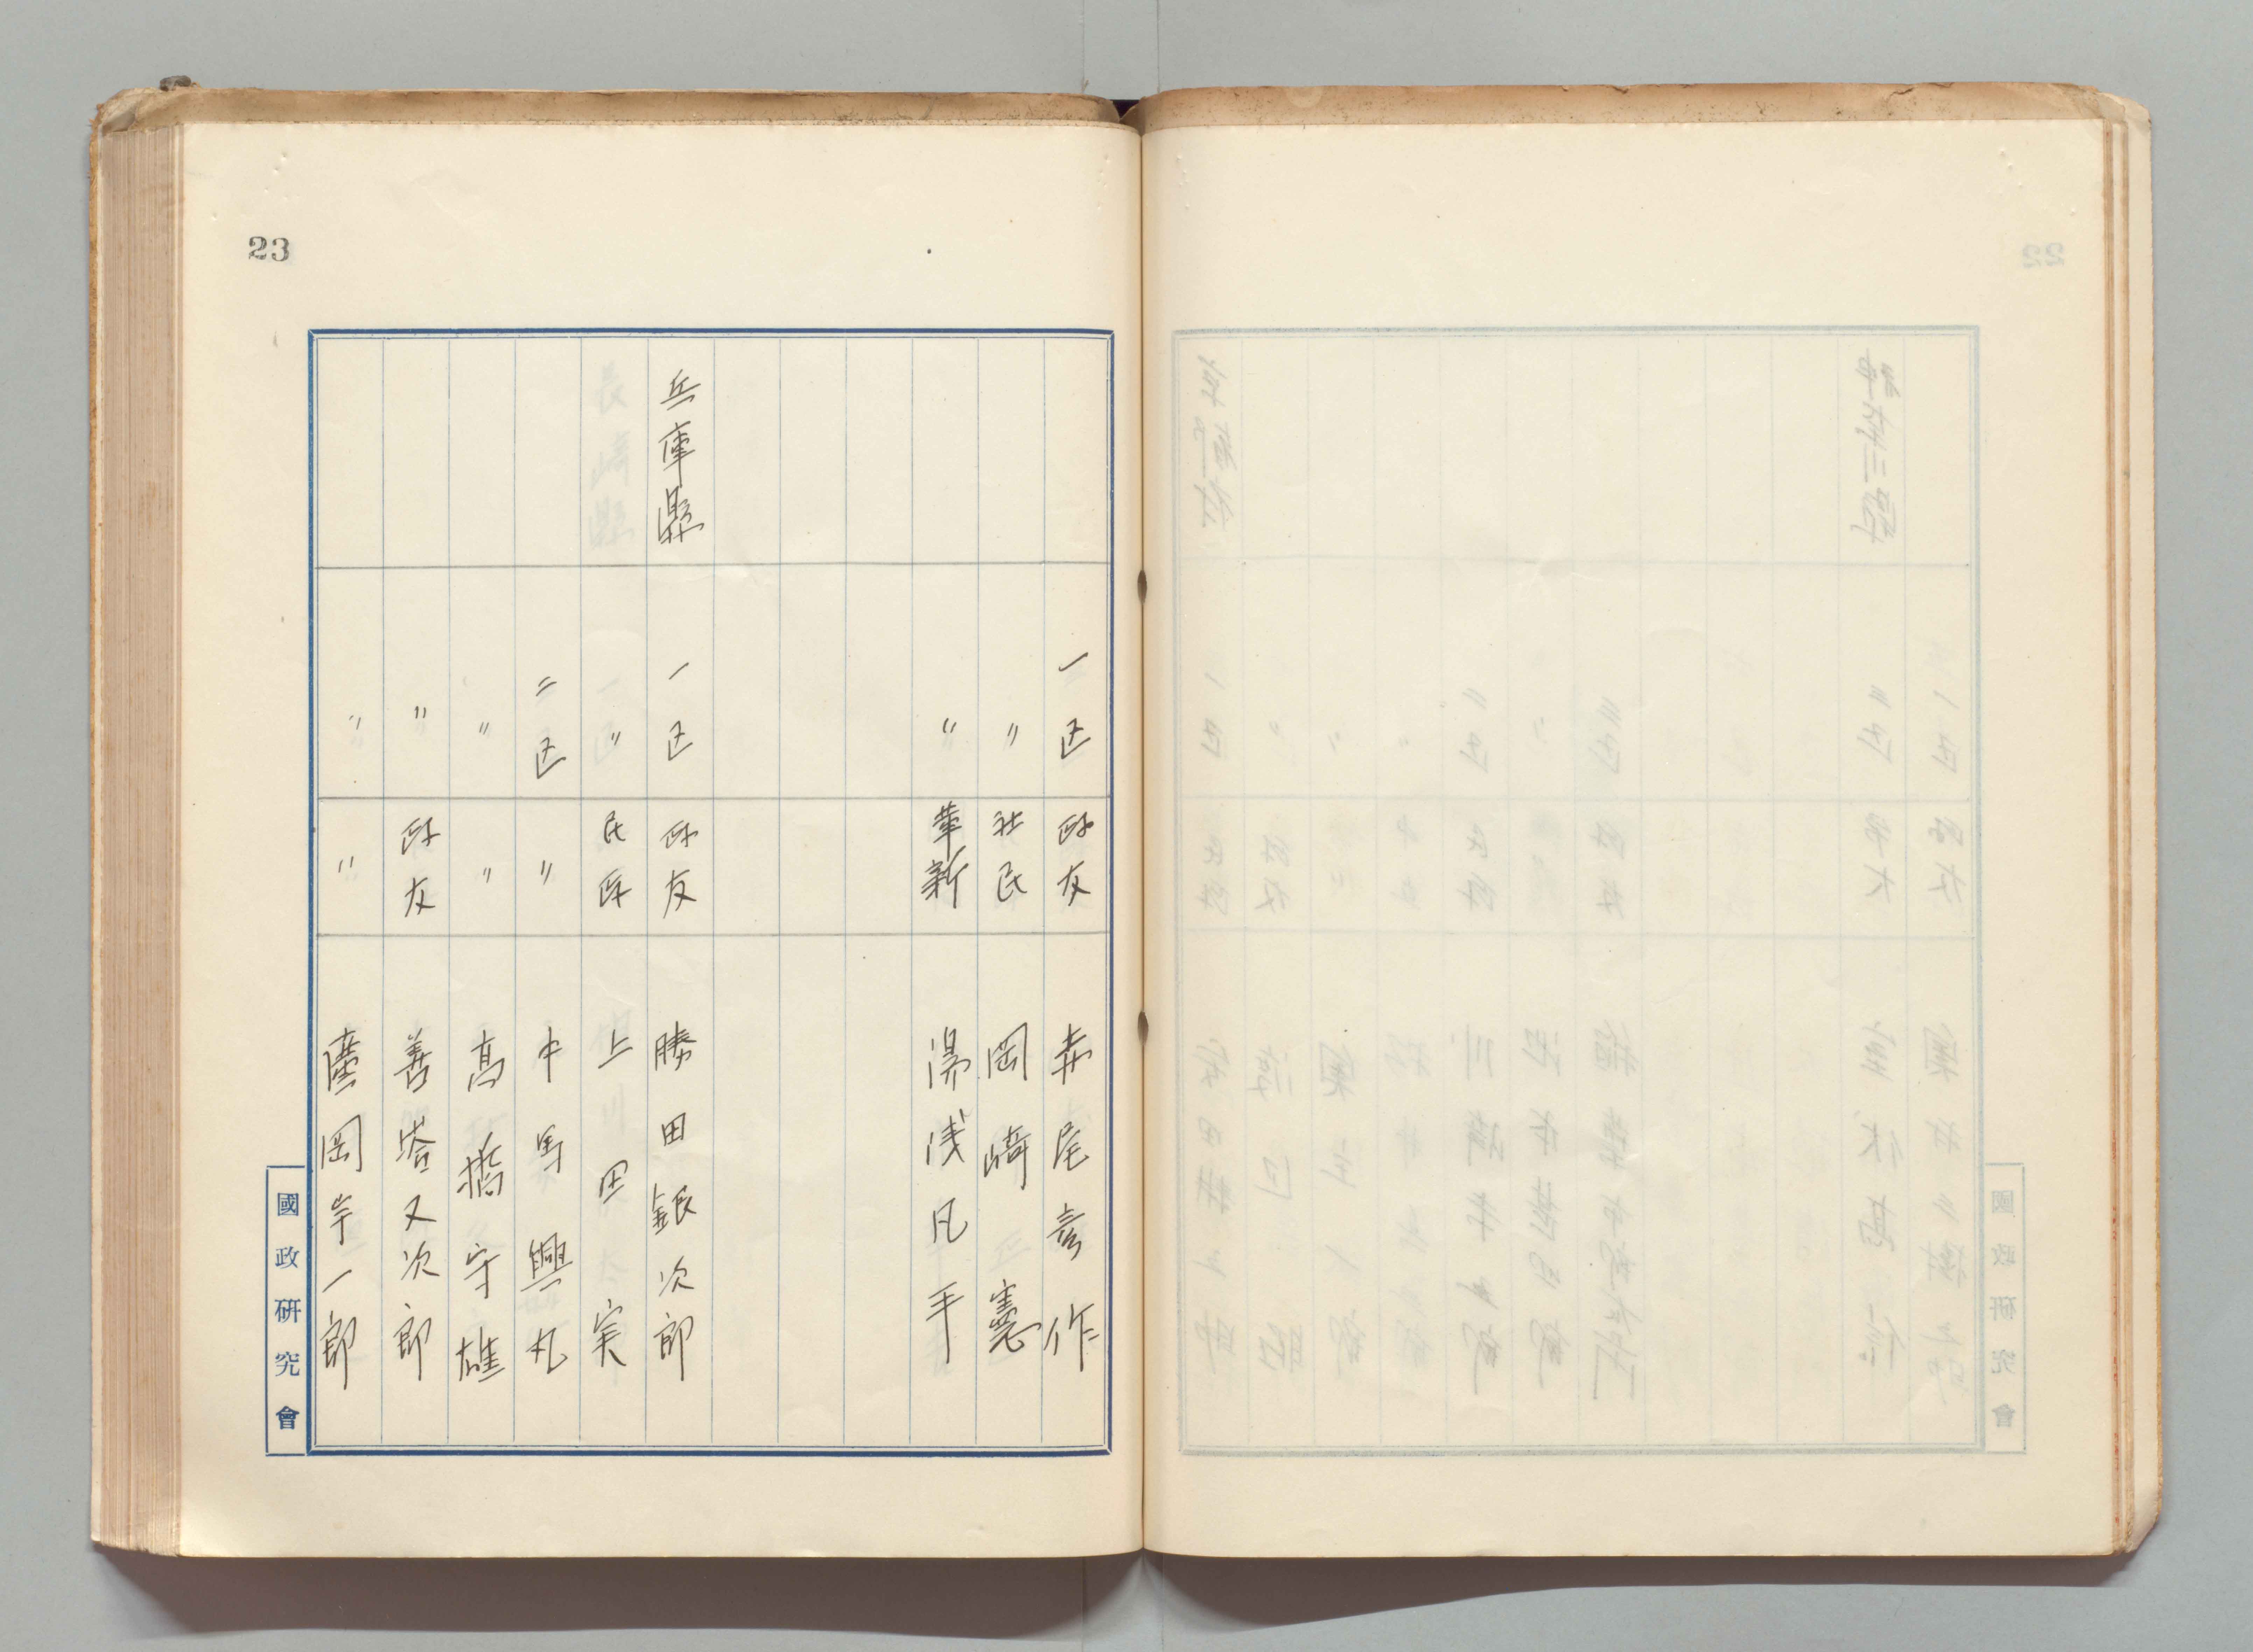 23
一区 政友 赤尾音作
〃 社民 岡崎憲
〃 革新 湯浅凡平
兵庫縣 一区 政友 勝田銀次郎
〃 民政 上田実
二区 〃 中馬興丸
〃 〃 高橋守雄
〃 政友 善塔又次郎
〃 〃 廣岡宇一郎
國政研究會